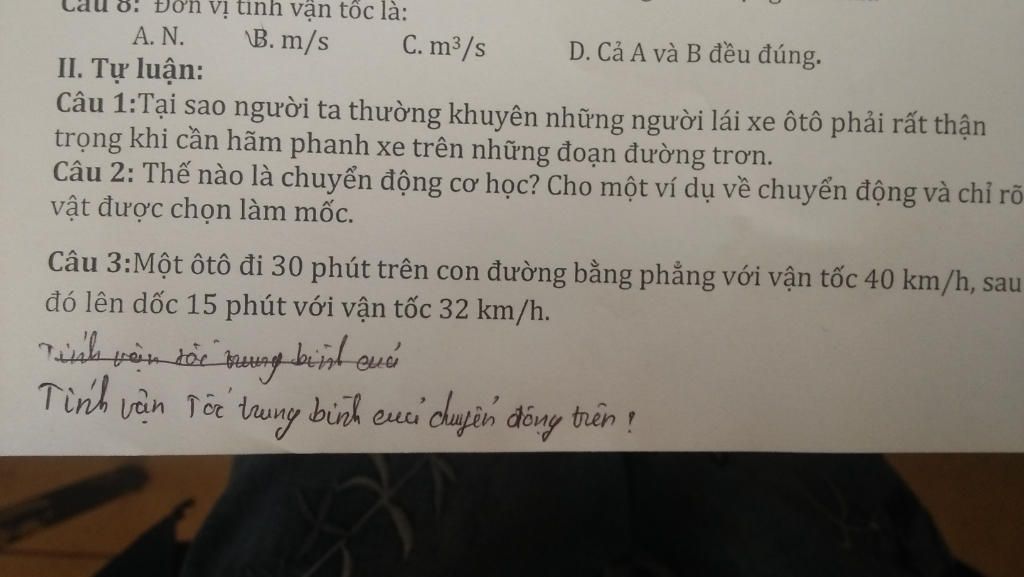 Câu 8: Đơn vị tính vận tốc là:
A. N. B. m/s C. m³/s D. Cả A và B đều đúng.
II. Tự luận:
Câu 1:Tại sao người ta thường khuyên những người lái xe ôtô phải rất thận
trọng khi cần hãm phanh xe trên những đoạn đường trơn.
Câu 2: Thế nào là chuyển động cơ học? Cho một ví dụ về chuyển động và chỉ rõ
vật được chọn làm mốc.
Câu 3:Một ôtô đi 30 phút trên con đường bằng phẳng với vận tốc 40 km/h, sau
đó lên dốc 15 phút với vận tốc 32 km/h.
Tính vận tốc trung bình cuả
Tính vận Tốc trung bình cuả chuyển động trên!